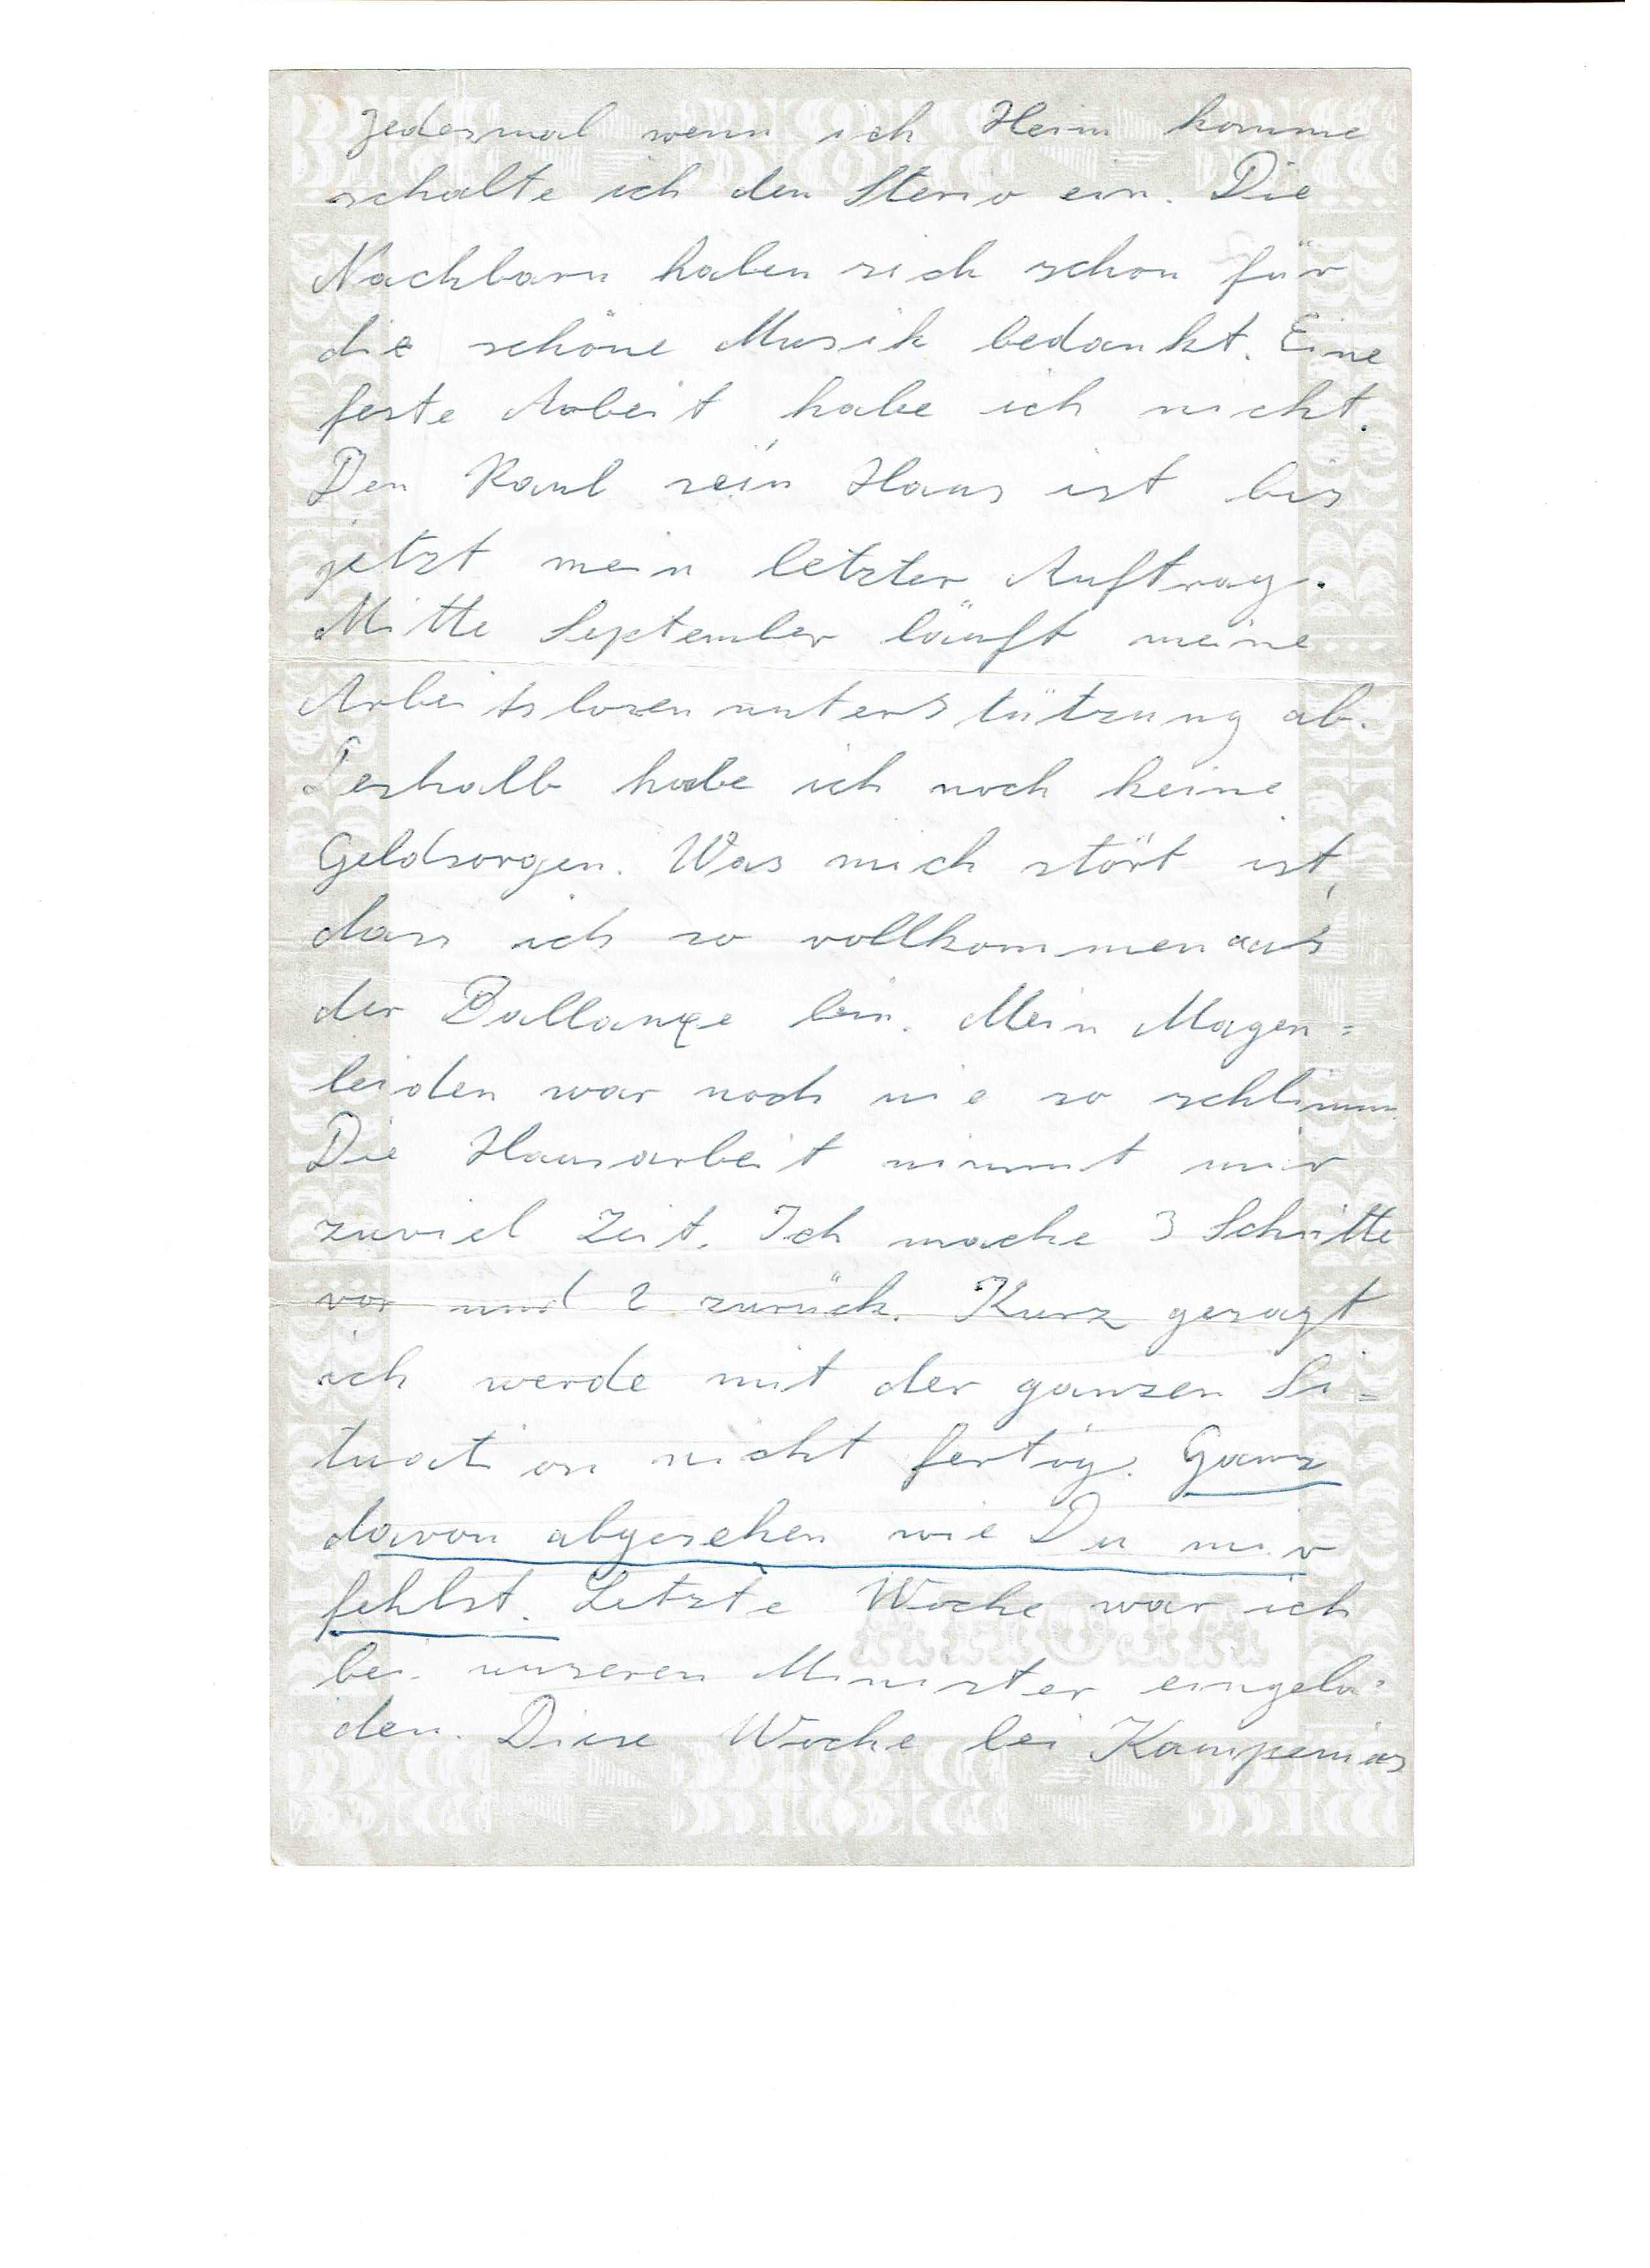 Jedesmal wenn ich Heim komme
schalte ich den Sterio ein. Die
Nachbarn haben sich schon für
die schöne Musik bedankt. Eine
feste Arbeit habe ich nicht.
Den Raul sein Haus ist bis
jetzt mein letzter Auftrag.
Mitte September läuft meine
Arbeitslosenunterstützung ab.
Deshalb habe ich noch keine
Geldsorgen. Was mich stört ist,
dass ich so vollkommen aus
der Ballanxe bin. Mein Magen=
leiden war noch nie so schlimm
Die Hausarbeit nimmt mir
zuviel Zeit. Ich mache 3 Schritte
vor und 2 zurück. Kurz gesagt
ich werde mit der ganzen Si=
tuation nicht fertig. Ganz
davon abgesehen wie Du mir
fehlst. Letzte Woche war ich
bei unseren Minister eingela=
den. Diese Woche bei